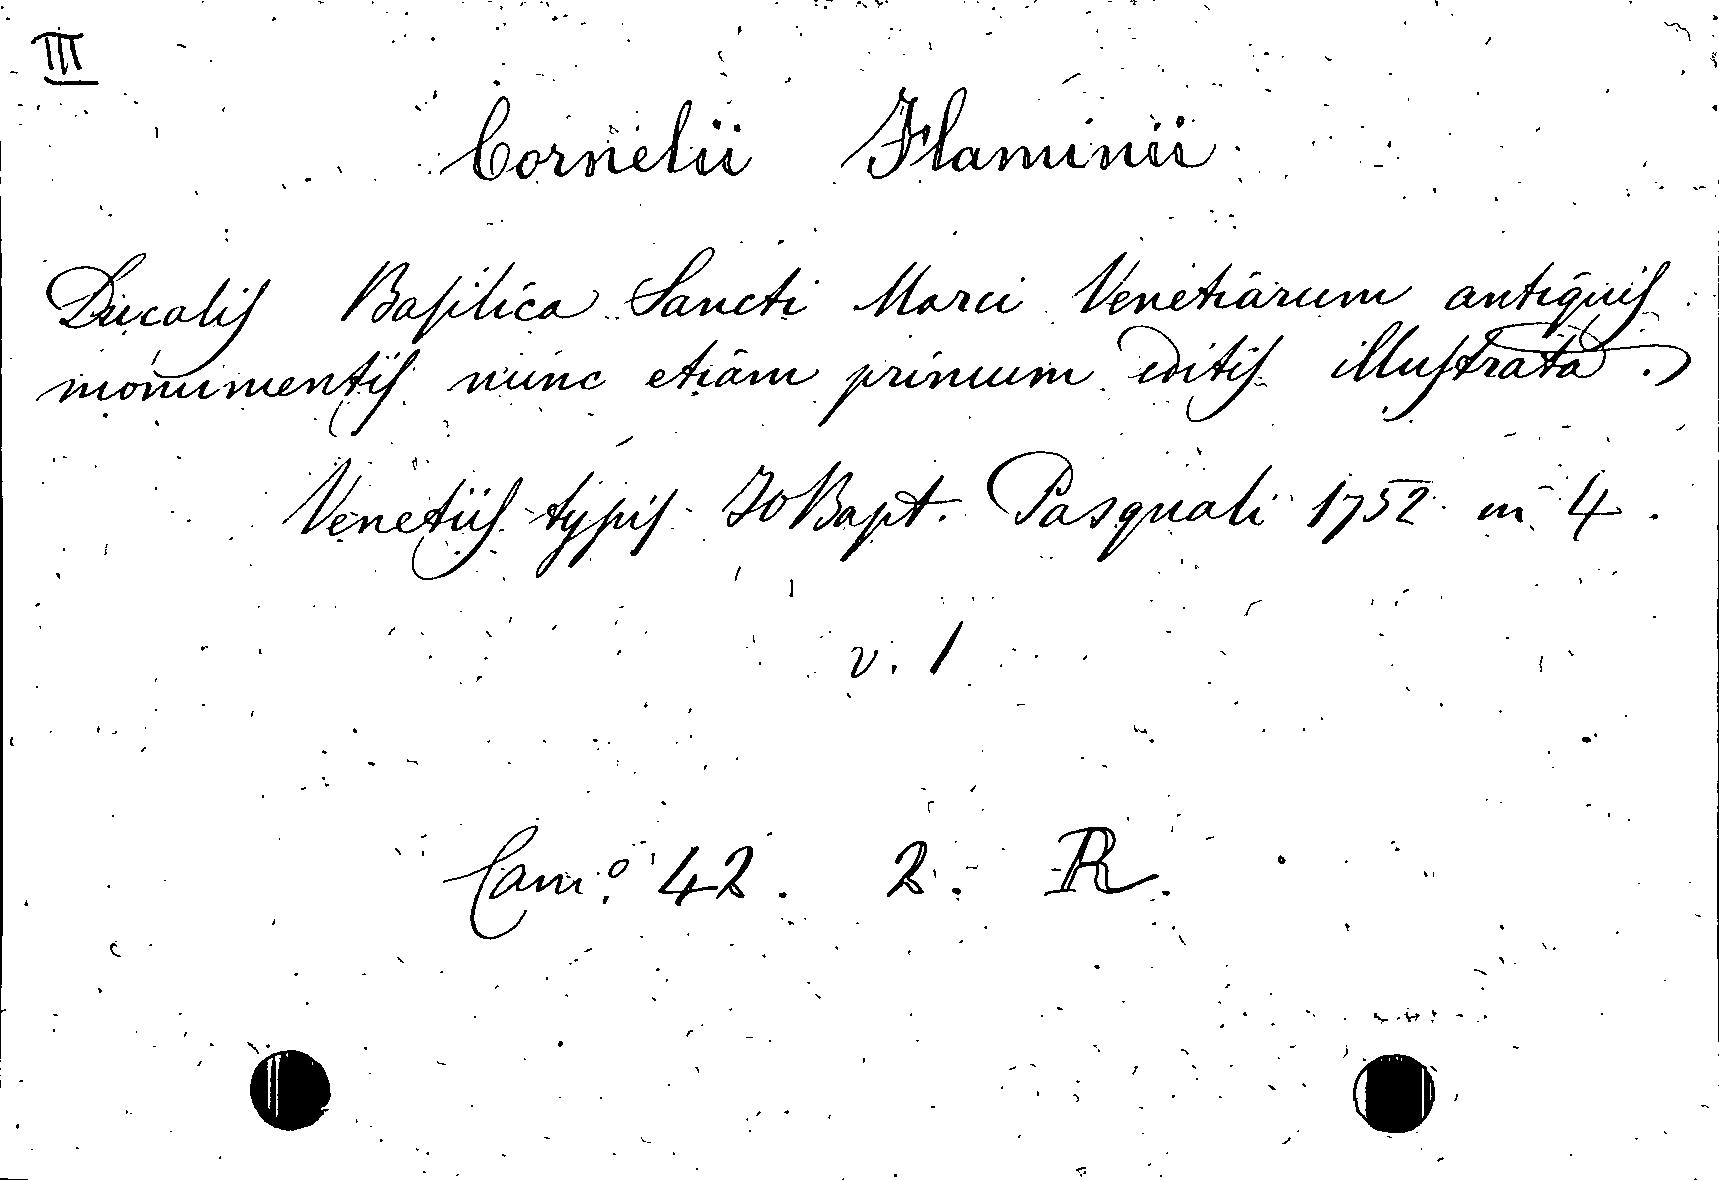 III
Cornelii Flaminii
Ducalis Basilica Sancti Marci Venetiarum antiquis
monumentis nunc etiam primum editis illustrata.
Venetiis typis Jo Bapt. Pasquali 1752 in 4.
v. 1
Cam.º 42. 2. R.